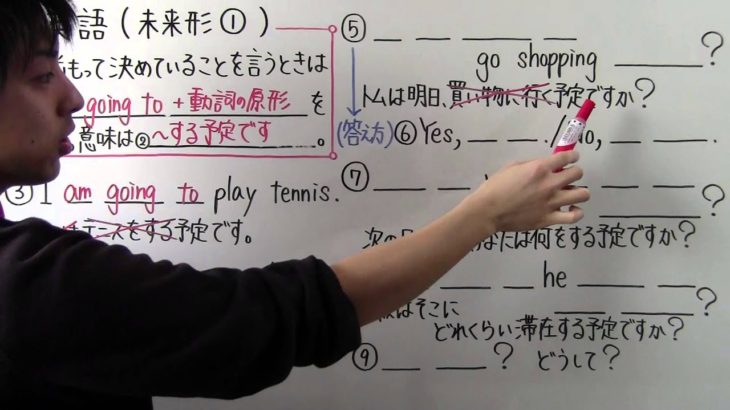 語(未来形①)
もって決めていることを言うときは
going to + 動詞の原形 を
意味は②～する予定です。
③ I am going to play tennis.
テニスをする予定です。
⑤
go shopping ?
トムは明日、買い物に行く予定ですか?
(答え方) ⑥ Yes, . / No, .
⑦
?
何をする予定ですか?
he ?
はそこに
どれくらい滞在する予定ですか?
⑨ ? どうして?